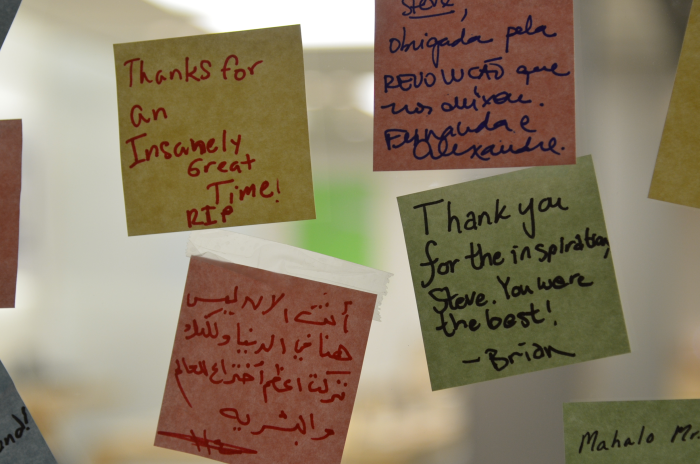 Thanks for
an
Insanely
Great
Time!
RIP
Steve,
obrigada pela
REVOLUÇÃO que
nos deixou.
Fernanda e
Alexandre.
Thank you
for the inspiration,
Steve. You were
the best!
- Brian
أنت الان ليس
هنا في الدنيا ولكنك
تركت اعظم اختراع للعالم
والبشريه
Mahalo Mr.